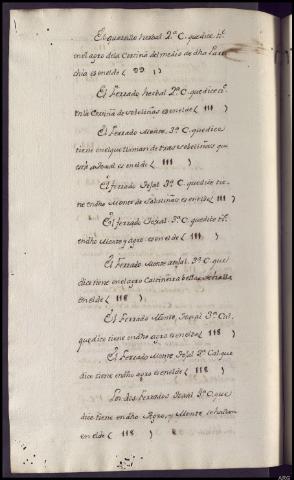 El quarto herbal 2ª C. que dice tt.
en el agro de la Corciña del medio de dha Parro
chia es en el de ( 99 )
El Ferrado herbal 2ª C. que dice tt.
en la Corciña de sobeliñas es en el de ( 111 )
El Ferrado Monte, 3ª C. que dice
tiene en el que llaman de tras sobeliñas que
está a tojal es en el de ( 111 )
El ferrado Tojal 3ª C. que dice tie-
ne en dho Monte de Sobeliñas es en el de ( 111 )
El ferrado Tojal 3ª C. que dice tt.
en dho Monte y agro es en el de ( 111 )
El Ferrado Monte tojal 3ª C. que
dice tiene en el agro
en el de ( 118 )
El Ferrado Monte, Tojal 3ª Cal.
que dice tiene en dho agro es en el de ( 118 )
El Ferrado Monte Tojal 3ª Cal. que
dice tiene en dho agro es en el de ( 118 )
Los dos Ferrados Tojal 3ª C. que
dice tiene en dho Agro, y Monte se hallan
en el de ( 118 )
ARG